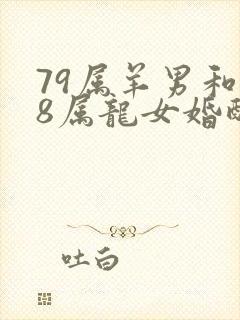 79属羊男和
8属龍女婚配
吐白